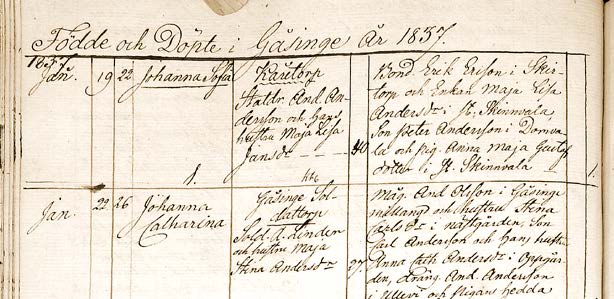 Födde och Döpte i Gåsinge År 1837.
1837.
Jan. 19 22 Johanna Sofia
Kåretorp
Staldr. And. An-
dersson och Hans
hustru Maja Lisa
Jansdr
40
Bond. Erik Ersson i Skir-
torp och Enkan Maja Lisa
Andersdr i St. Skinnvala,
Son Peter Andersson i Domva-
la och Pig. Anna Maja Gustafs
dotter i St. Skinnvala
1.
1.
Jan 22 26 Johanna
Catharina
Gåsinge Sol-
dattorp
Sold. A. Linden
och hustru Maja
Stina Andersdr
27.
Måg. And Olsson i Gåsinge
och hustru Stina
Carlsdr i Son
Carl Andersson och Hans hustru
Anna Cath Andersdr i Oppgår-
den, dräng. And. Andersson
i Ullevi och Pigan Hedda